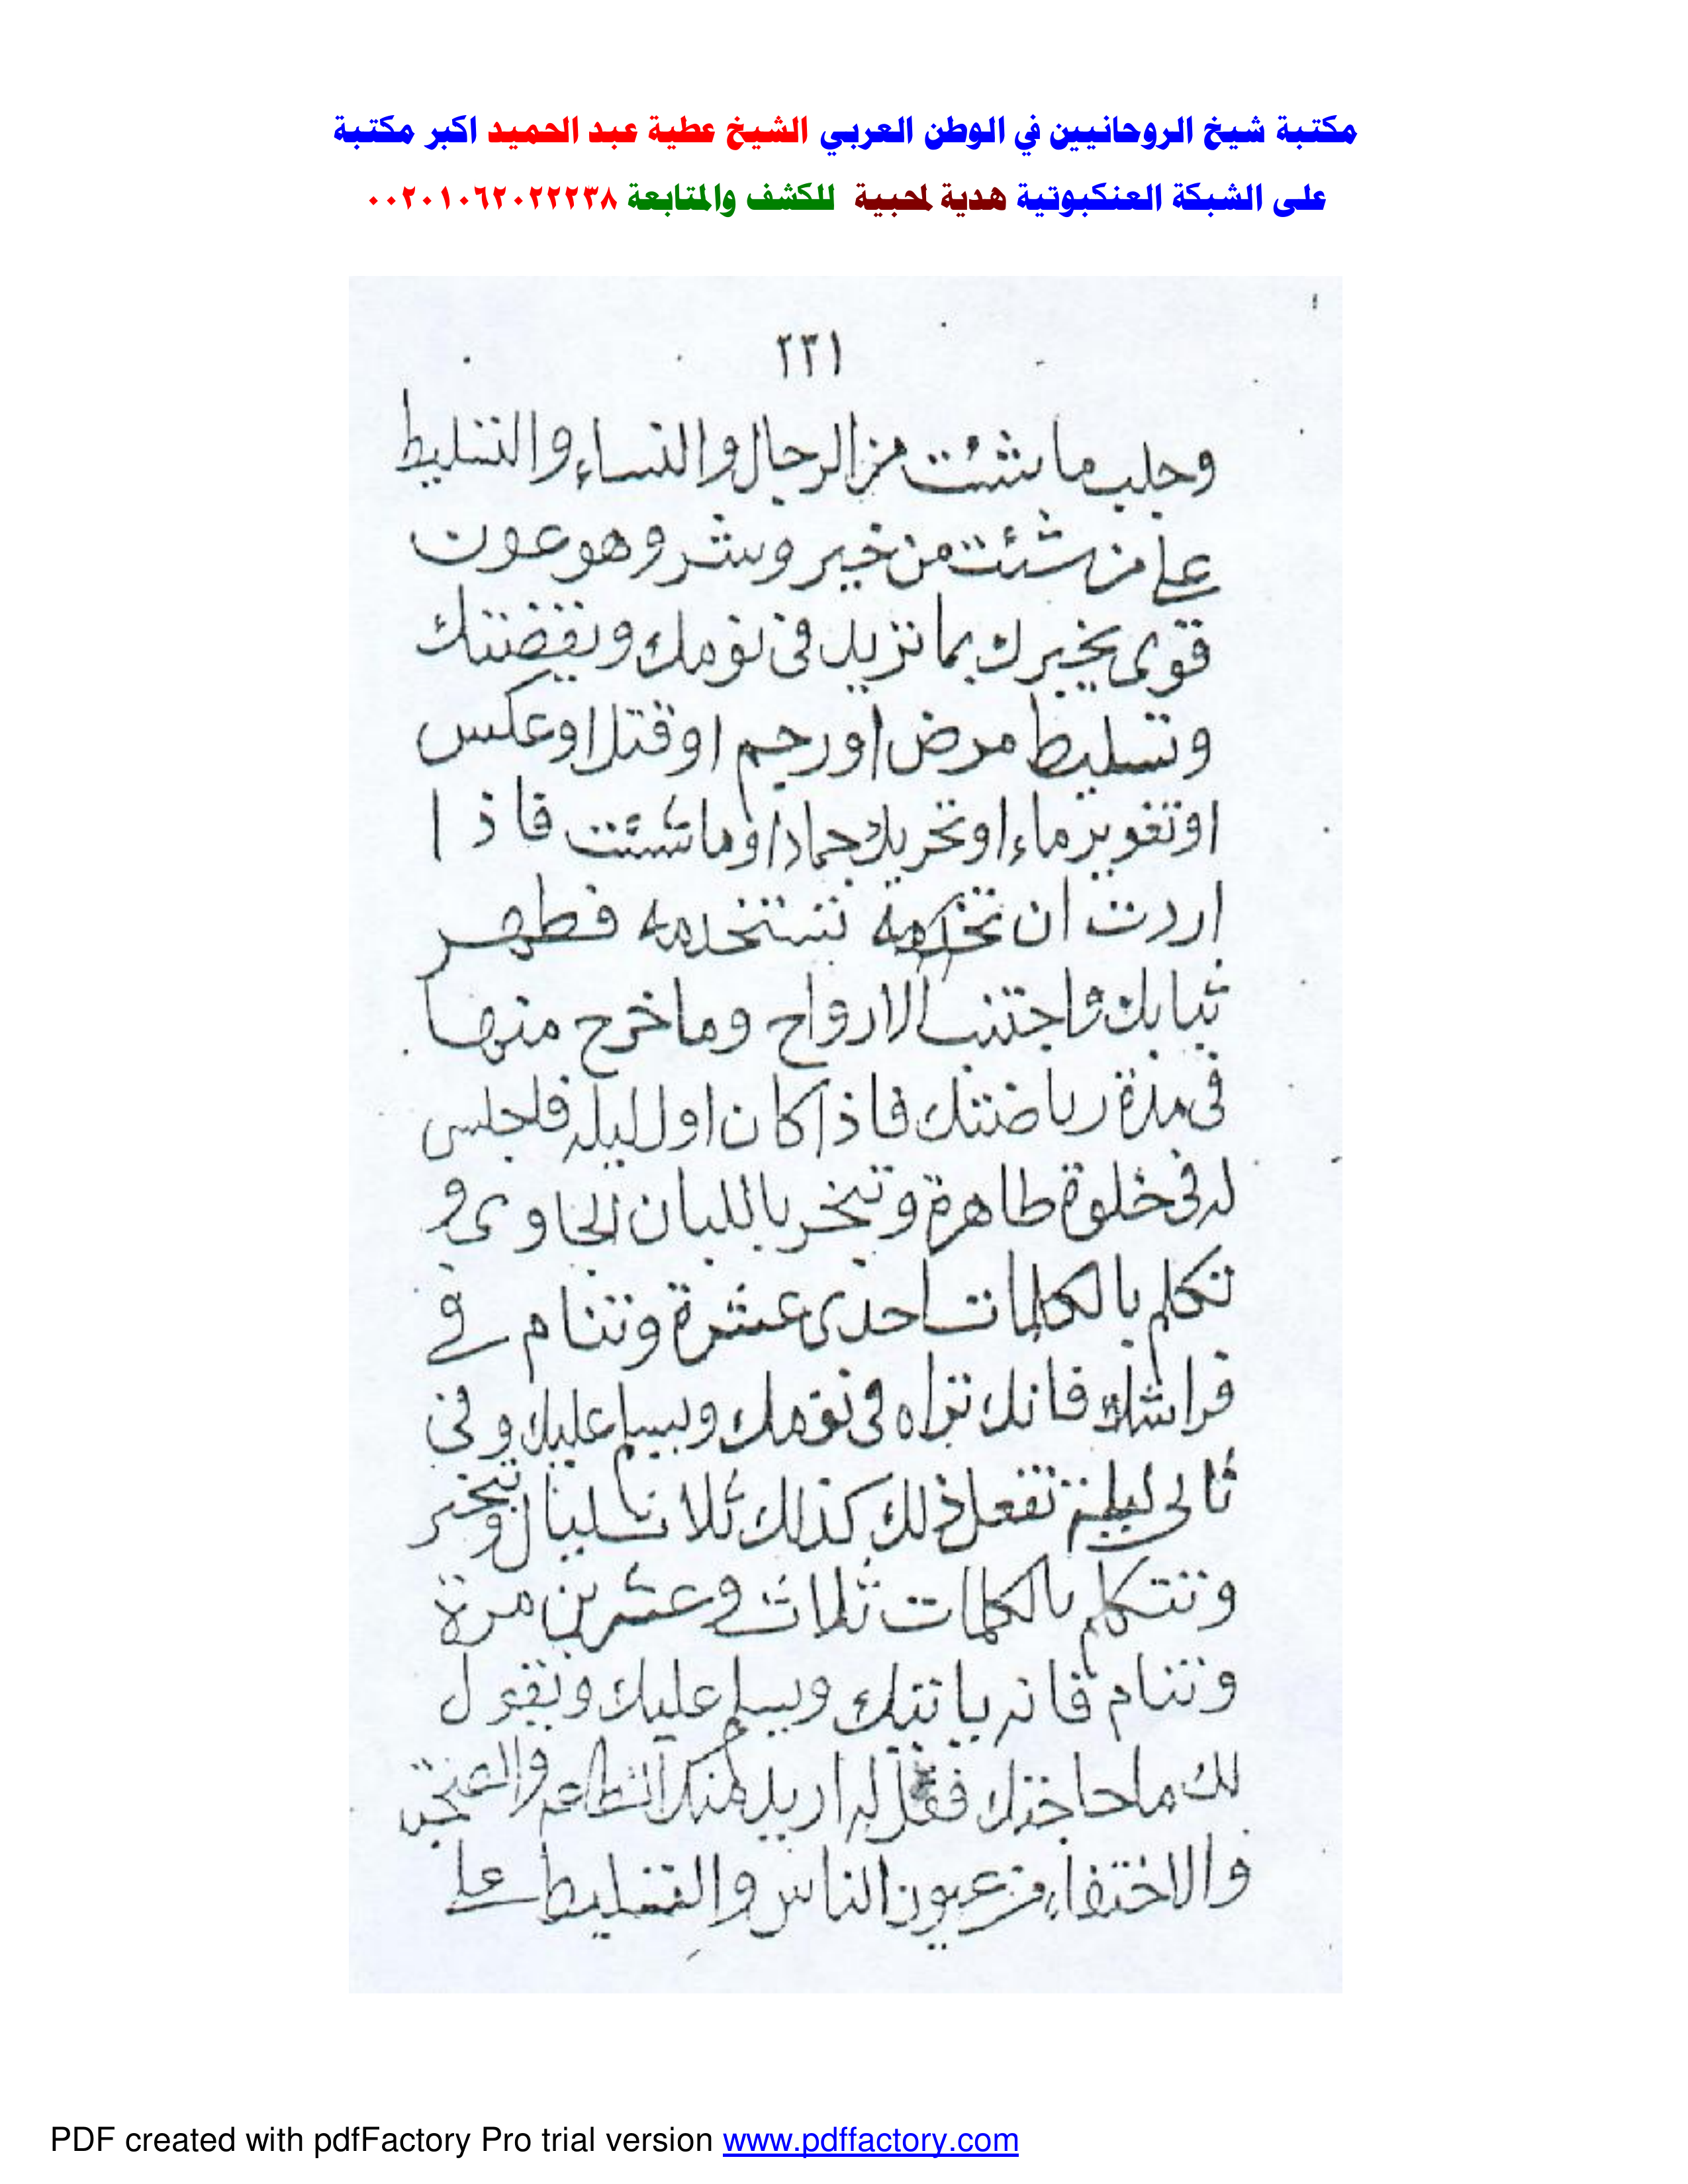 مكتبة شيخ الروحانيين في الوطن العربي الشيخ عطية عبد الحميد اكبر مكتبة
على الشبكة العنكبوتية هدية لمحبية للكشف والمتابعة ٠٠٢٠١٠٦٢٠٢٢٢٣٨
٢٣١
وجلب ما شئت من الرجال والنساء والتسليط
على من شئت من خير وشر وهو عون
قوى يخبرك بما تريد فى نومك ويقضتك
وتسليط مرض او رجم او قتل او عكس
او تغوير ماء او تحريك جماد او ما شئت فاذا
اردت ان تستخدمه فطهر
ثيابك واجتنب الارواح وما خرج منها
فى مدة رياضتك فاذا كان اول ليله فاجلس
له فى خلوة طاهرة وتبخر باللبان الجاوى و
تكلم بالكلمات احدى عشرة وتنام فى
فراشك فانك تراه فى نومك ويسلم عليك وفى
ثانى ليلة تفعل ذلك كذلك ثلاث ليال وتبخر
وتتكلم بالكلمات ثلاث وعشرين مرة
وتنام فانه ياتيك ويسلم عليك ويقول
لك ما حاجتك فقل له اريد منك الطاعه
والاختفاء من عيون الناس والتسليط على
PDF created with pdfFactory Pro trial version www.pdffactory.com